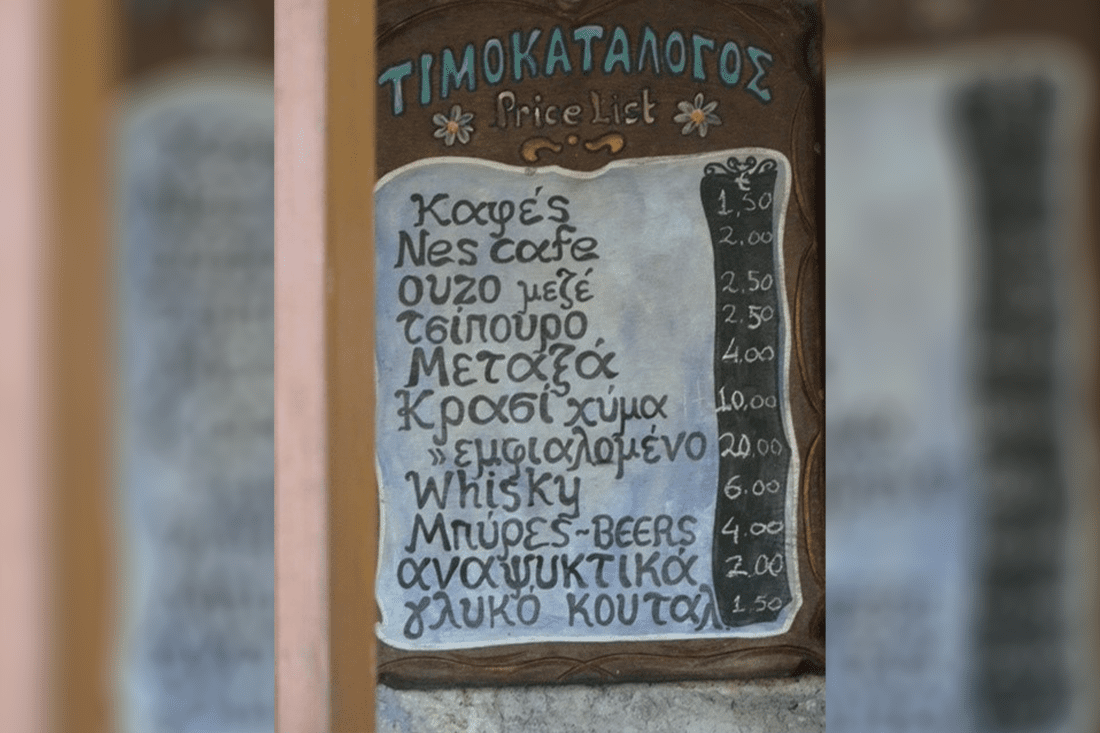 ΤΙΜΟΚΑΤΑΛΟΓΟΣ
Price List
€
Καφές 1,50
Nes cafe 2.00
ουζο μεζέ 2.50
τσίπουρο 2.50
Μεταξά 4.00
Κρασί χύμα 10,00
» εμφιαλομένο 20,00
Whisky 6.00
Μπύρες-BEERS 4.00
αναψυκτικά 2.00
γλυκό κουταλ. 1.50